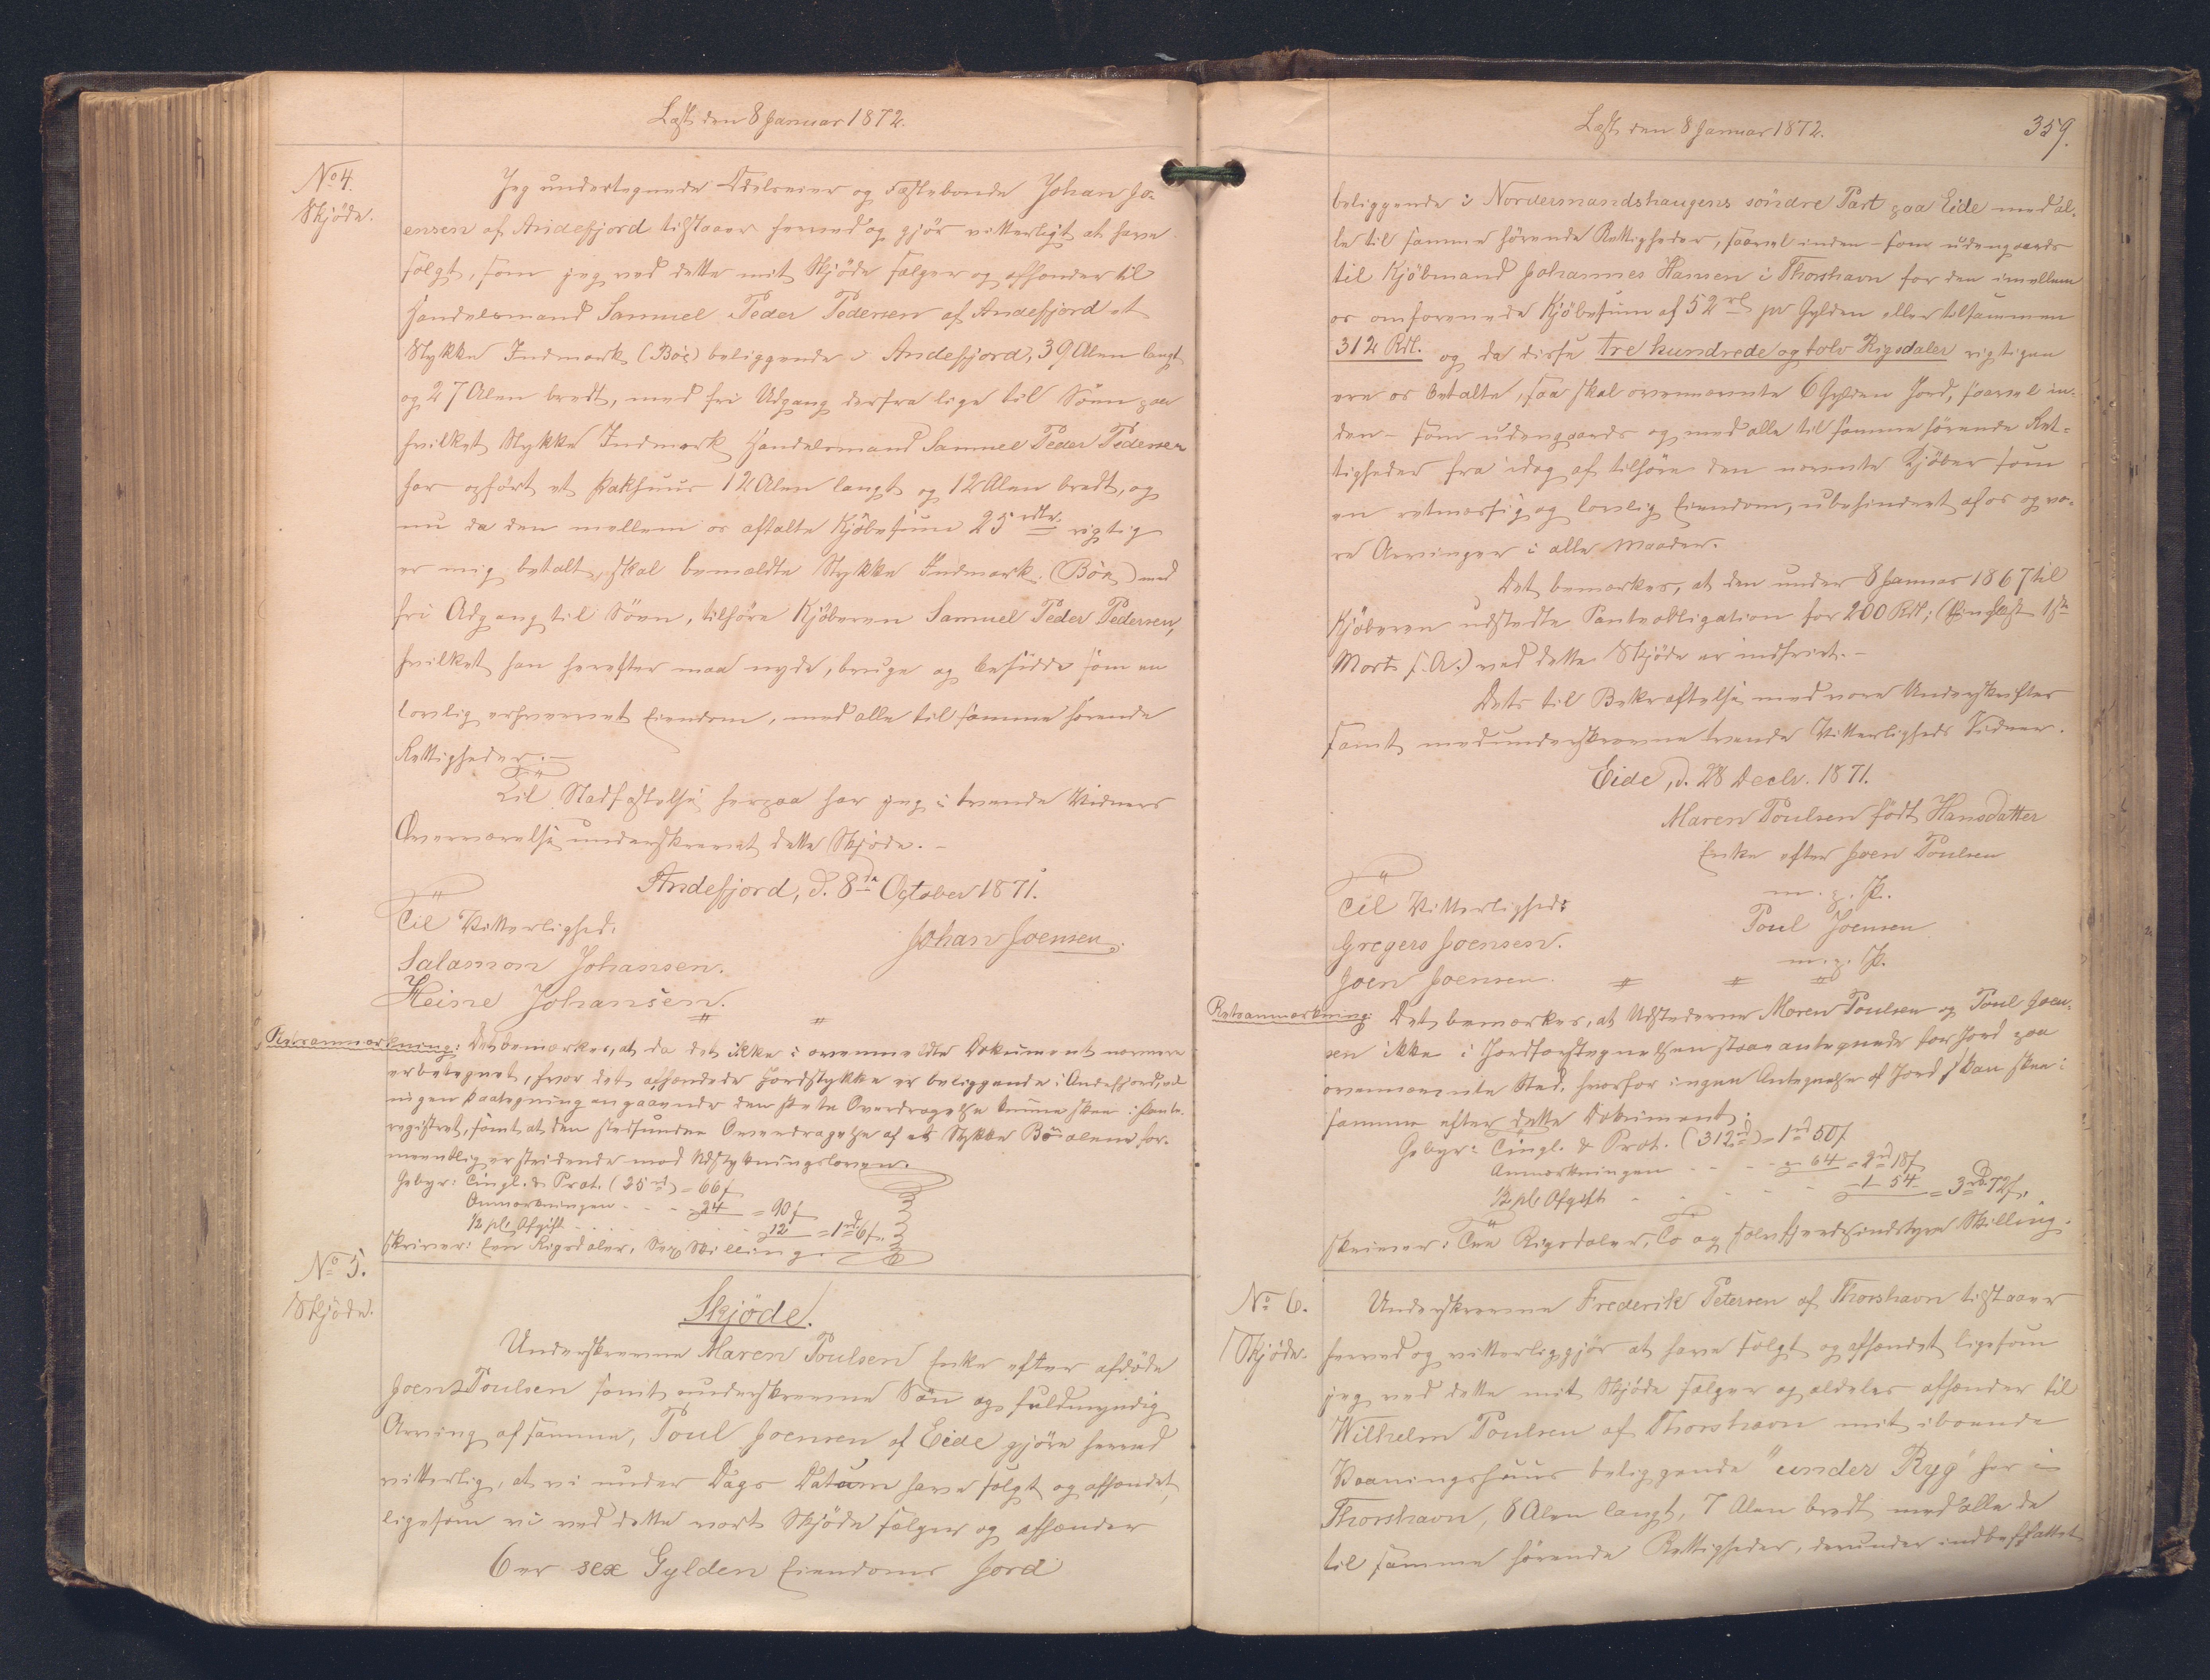 Læst den 8 Januar 1872.
No 4.
Skjöde.
Jeg undertegnede Odelseier og Fæstebonde Johan Jo-
ensen af Andefjord tilstaaer herved og gjör vitterligt at have
solgt, som jeg ved dette mit Skjöde sælger og afhænder til
Handelsmand Samuel Peder Pedersen af Andefjord et
Stykke Indmark (Böe) beliggende i Andefjord, 39 Alen langt
og 27 Alen bredt, med fri Udgang derfra lige til Söen paa
hvilket Stykke Indmark Handelsmand Samuel Peder Pedersen
har opfört et Pakhuus 12 Alen langt og 12 Alen bredt, og
nu da den mellem os aftalte Kjöbesum 25 rdlr. rigtig
er mig betalt, skal bemældte Stykke Indmark (Böe) med
fri Adgang til Söen, tilhöre Kjöberen Samuel Peder Pedersen,
hvilket han herefter maa nyde, bruge og besidde som en
lovlig erhvervet Eiendom, med alle til samme hörende
Rettigheder. –
Til Stadfæstelse herpaa har jeg i tvende Vidners
Overværelse underskrevet dette Skjöde. –
Andefjord, d. 8de October 1871.
Til Vitterlighed:
Johan Joensen.
Salamon Johansen.
Heine Johansen.
Retsanmærkning: Det bemærkes, at da det ikke i ovenmeldte Dokument nærmere
er betegnet, hvor det afhændede Jordstykke er beliggende i Andefjord, vil
ingen Paategning angaaende den skete Overdragelse kunne skee i Pante-
registret, samt at den stedfundne Overdragelse af et Stykke Böe alene for-
meentlig er stridende mod Udstykningsloven.
Gebyr: Tingl. & Prot. (25 rd) = 66 ʃ
Anmærkningen - - - 24 = 90 ʃ
½ pCt Afgift - - - 12 = 1 rd 6 ʃ.
skriver: Een Rigsdaler, Sex Skilling.
No 5.
Skjöde.
Skjöde.
Underskrevne Maren Poulsen Enke efter afdöde
Joen Poulsen samt underskrevne Sön og fuldmyndig
Arving af samme, Poul Joensen af Eide gjöre herved
vitterlig, at vi under Dags Datum have solgt og afhændet,
ligesom vi ved dette vort Skjöde sælger og afhænder
6 er sex Gylden Eiendoms Jord
Læst den 8 Januar 1872.
359.
beliggende i Nordermandshaugens söndre Part paa Eide med al-
le til samme hörende Rettigheder, saavel inden- som udengaards
til Kjöbmand Johannes Hansen i Thorshavn for den imellem
os omforenede Kjöbesum af 52 rd pr Gylden eller tilsammen
312 Rdl. og da disse tre hundrede og tolv Rigsdaler rigtigen
ere os betalte, saa skal ovennævnte 6 Gylden Jord, saavel in-
den- som udengaards og med alle til samme hörende Ret-
tigheder fra idag af tilhöre den nævnte Kjöber som
en retmæssig og lovlig Eiendom, ubehindret af os og vo-
re Arvinger i alle Maader.
Det bemærkes, at den under 8 Januar 1867 til
Kjöberen udstedte Panteobligation for 200 Rdl; (Thinglæst 1ste
Marts s. A.) ved dette Skjöde er indfriet. –
Dets til Bekræftelse med vore Underskrifter
samt medunderskrevne tvende Vitterligheds Vidner.
Eide, d. 28 Decbr. 1871.
Maren Poulsen födt Hansdatter
Enke efter Joen Poulsen
m. p. P.
Til Vitterlighed:
Poul Joensen
Gregers Joensen.
m. p. P.
Joen Joensen.
Retsanmærkning: Det bemærkes, at Udstederne Maren Poulsen og Poul Joen-
sen ikke i Jordfortegnelsen staae antegnede for Jord paa
ovennævnte Sted, hvorfor ingen Antegnelse af Jord kan skee i
samme efter dette Dokument.
Gebyr: Tingl. & Prot. (312 rd) = 1 rd 50 ʃ
Anmærkningen - - - 64 = 2 rd 18 ʃ
½ pCt Afgift - - - 1 54 = 3 rd 72 ʃ.
skriver: Tre Rigsdaler, To og halvfjerdsindstyve Skilling.
No 6.
Skjöde.
Underskrevne Frederik Petersen af Thorshavn tilstaaer
herved og vitterliggjör at have solgt og afhændet ligesom
jeg ved dette mit Skjöde sælger og aldeles afhænder til
Wilhelm Poulsen af Thorshavn mit iboende
Vaaningshuus beliggende "under Ryg" her i
Thorshavn, 8 Alen langt, 7 Alen bredt med alle de
til samme hörende Rettigheder, derunder indbefattet